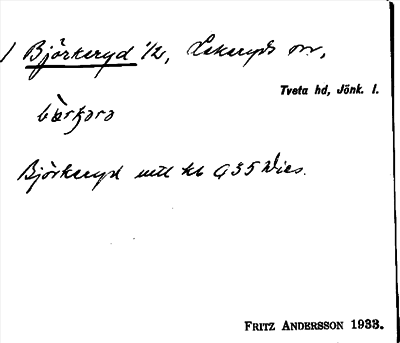 1 Björkeryd 1/2, Lekeryds sn,
Tveta hd, Jönk. l.
Björkeryd mtl kb 435 Wies.
FRITZ ANDERSSON 1933.